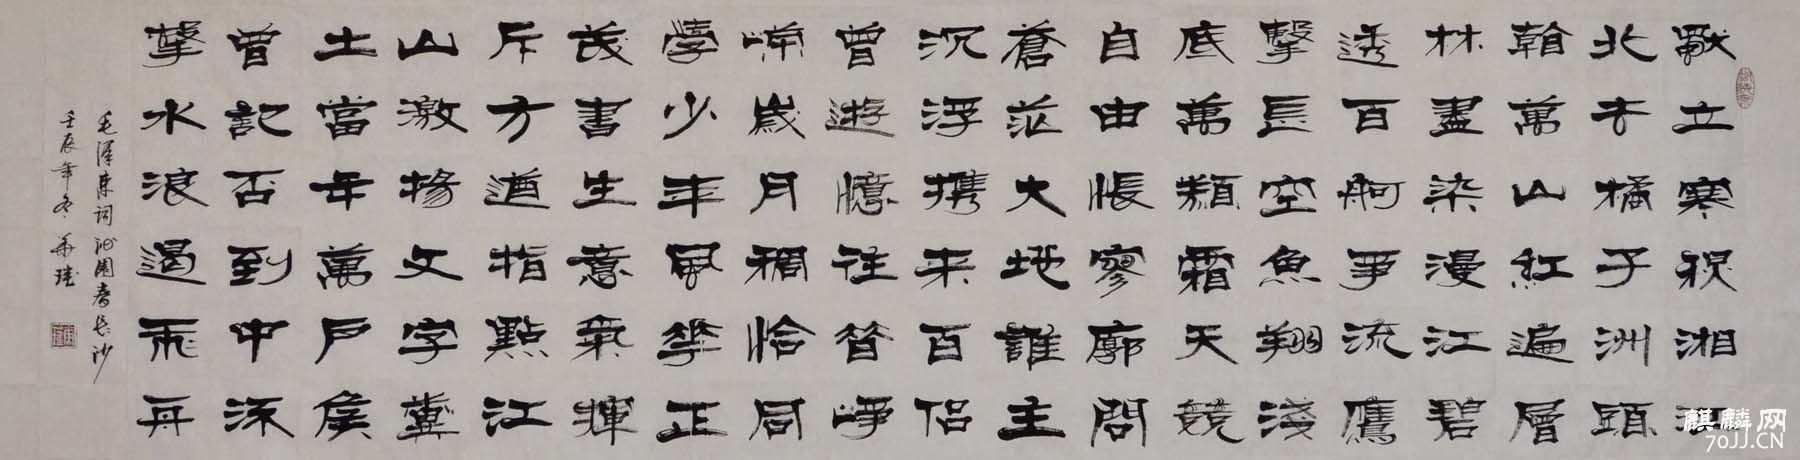 獨立寒秋湘江
北去橘子洲頭
看萬山紅遍層
林盡染漫江碧
透百舸爭流鷹
擊長空魚翔淺
底萬類霜天競
自由悵寥廓問
蒼茫大地誰主
沉浮携來百侶
曾遊憶往昔崢
嶸歲月稠恰同
學少年風華正
茂書生意氣揮
斥方遒指點江
山激揚文字糞
土當年萬戶侯
曾記否到中流
擊水浪遏飛舟
毛澤東詞沁園春長沙
壬辰年冬
麒麟网
70JJ.CN